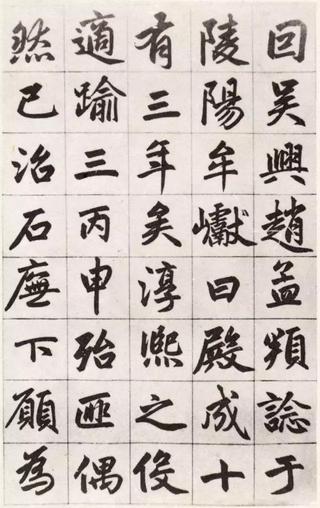 回吳興趙孟頫諗于
陵陽牟巘曰殿成十
有三年矣淳熙之役
適踰三丙申殆匪偶
然已治石廡下願為